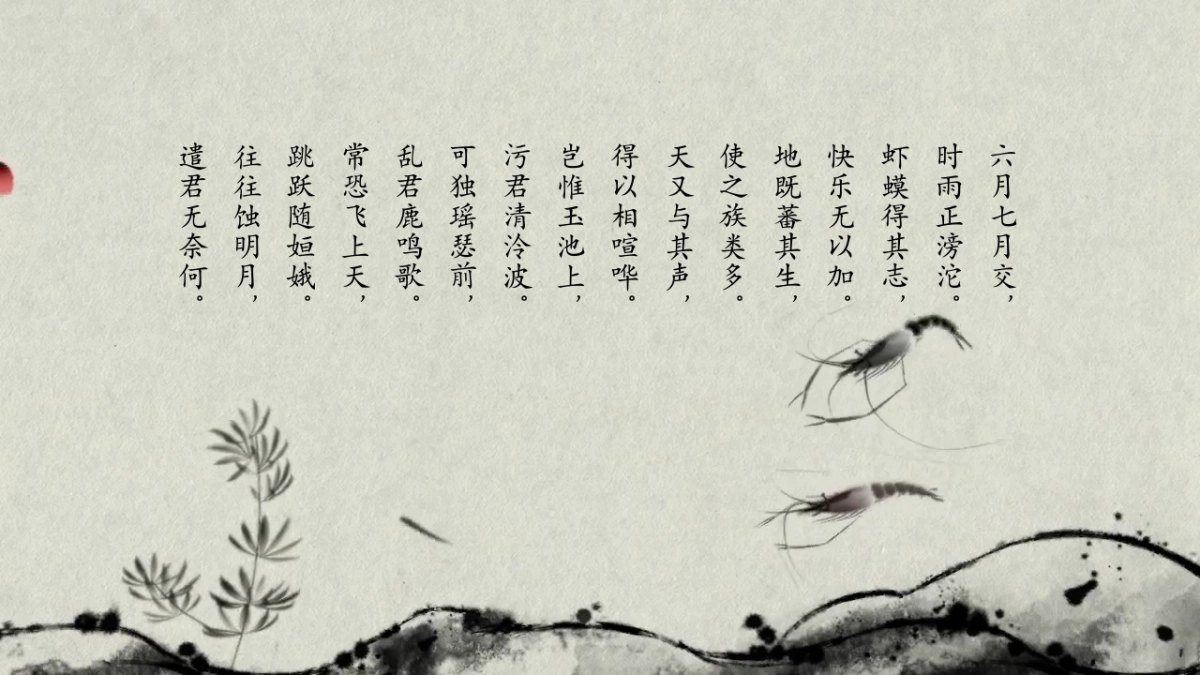 六月七月交，
时雨正滂沱。
虾蟆得其志，
快乐无以加。
地既蕃其生，
使之族类多。
天又与其声，
得以相喧哗。
岂惟玉池上，
污君清泠波。
可独瑶瑟前，
乱君鹿鸣歌。
常恐飞上天，
跳跃随姮娥。
往往蚀明月，
遣君无奈何。